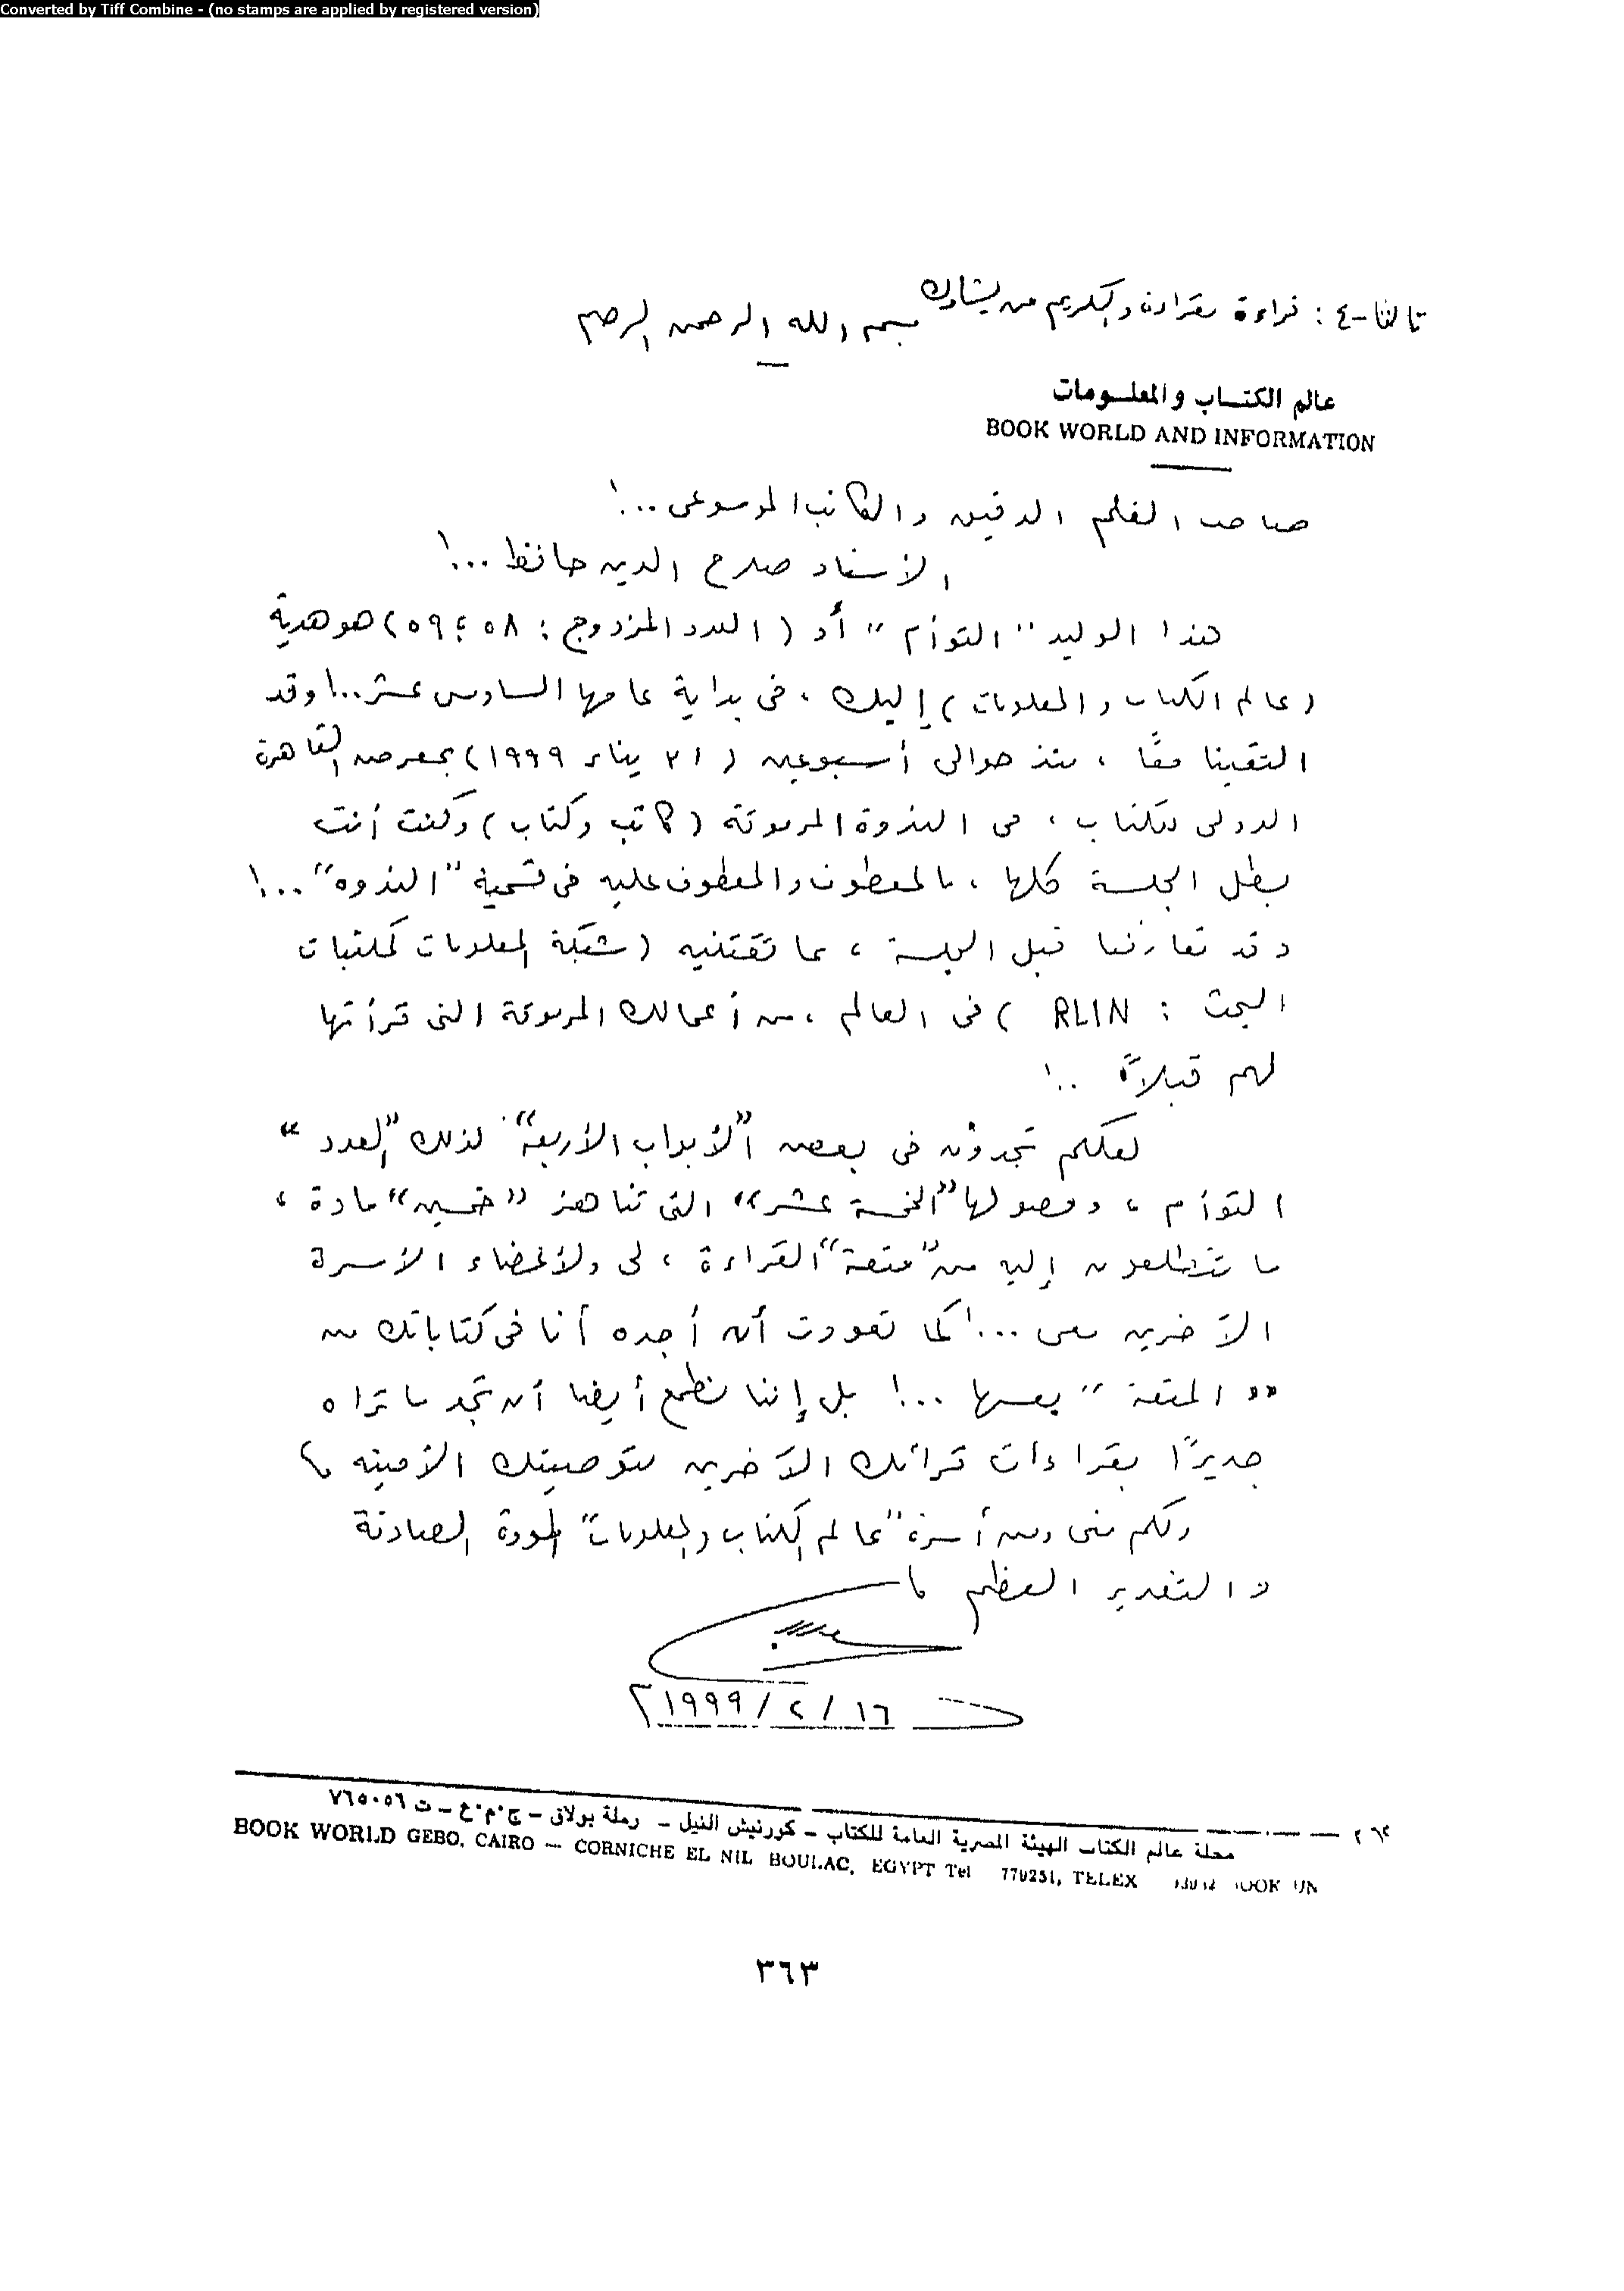 Converted by Tiff Combine - (no stamps are applied by registered version)
ثالثا-٤ : قراءة والكريم من يشارك
بسم الله الرحمن الرحيم
عالم الكتـاب والمعلـومات
BOOK WORLD AND INFORMATION
صاحب القلم الدقيق والكاتب الموسوعى ..!
الأستاذ صلاح الدين حافظ ...!
هذا الوليد "التوأم" أو (العدد المزدوج : ٥٨ ؛ ٥٩) هو هدية
(عالم الكتاب والمعلومات) إليك ، فى بداية عامها السادس عشر ..! وقد
التقينا معًا ، منذ حوالى أسبوعين (٢١ يناير ١٩٩٩) بمعرض القاهرة
الدولى للكتاب ، فى الندوة المرموقة (كاتب وكتاب) وكنت أنت
بطل الجلسة كلها ، بالمعطوف والمعطوف عليه فى تسمية "الندوه" ..!
وقد تعارفنا قبل الجلسة ، بما تقتنيه (شبكة المعلومات لمكتبات
البحث : RLIN) فى العالم ، من أعمالك المرموقة التى قرأتها
لهم قبلاً ..!
لعلكم تجدون فى بعض "الأبواب الأربعة" لذلك "العدد"
التوأم ، وفصولها "الخمسة عشر" التى تناهز "خمسين" مادة ،
ما تتطلعون إليه من "متعة" القراءة ، لى ولأعضاء الأسرة
الآخرين معى ...! كما تعودت أن أجده أنا فى كتاباتك من
"المتعة" بعينها ...! بل إننا نطمع أيضا أن تجد ما تراه
جديرًا بقراءات قرائك الآخرين بتوصيتك الأمينة
ولكم منى ومن أسرة "عالم الكتاب والمعلومات" المودة الصادقة
والتقدير العظيم
١٦ / ٢ / ١٩٩٩م
مجلة عالم الكتاب الهيئة المصرية العامة للكتاب - كورنيش النيل - رملة بولاق - ج.م.ع - ت ٧٦٥٠٥٦
BOOK WORLD GEBO, CAIRO — CORNICHE EL NIL BOULAC, EGYPT Tel 779251, TELEX BOOK UN
٣٦٣